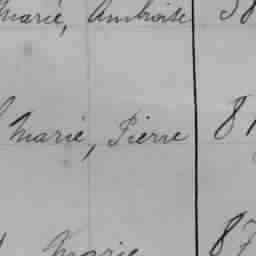 Marié, Ambroise
Marié, Pierre 81
Marie 87